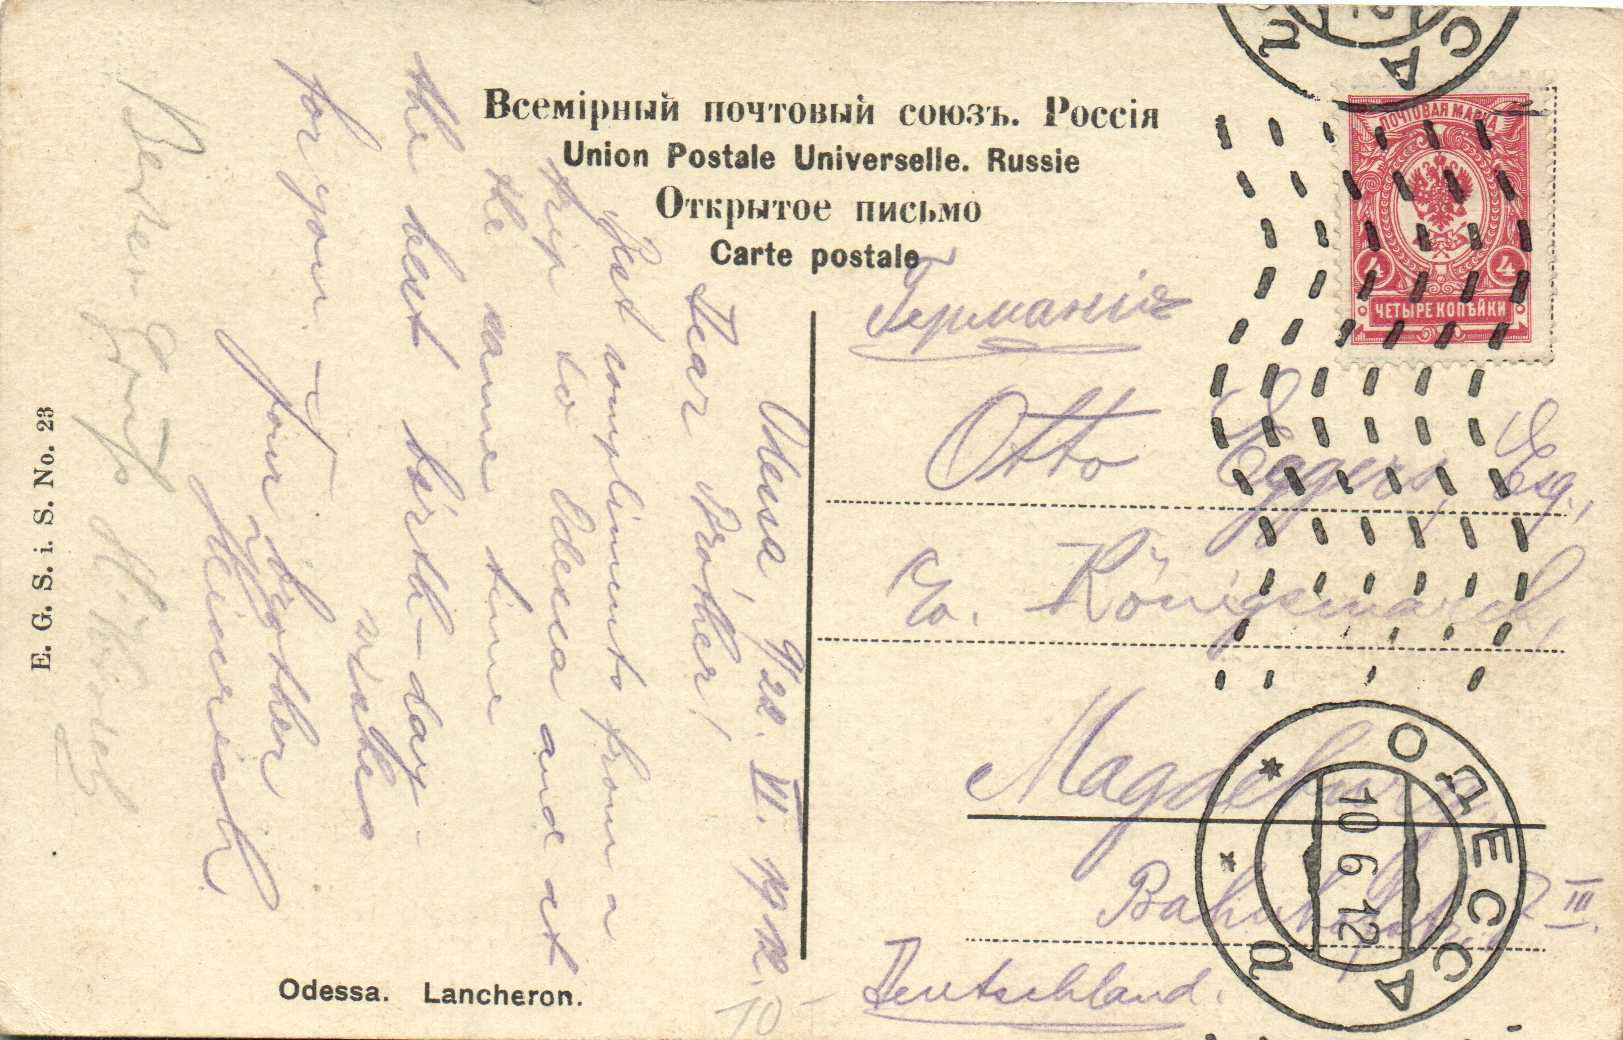 Всемірный почтовый союзъ. Россія
Union Postale Universelle. Russie
Открытое письмо
Carte postale
ПОЧТОВАЯ МАРКА
4 4
ЧЕТЫРЕ КОПѢЙКИ
Германія
Otto Eggers, Esq.,
c/o. Königsmarck,
Magdeburg,
III.
Deutschland.
Odessa 9/22. VI. 1912.
Dear Brother!
Best compliments from a
trip to Odessa and at
the same time
the best birth-day-
wishes
for you.
Your brother,
Heinrich
ОДЕССА
10 6 12
а
E. G. S. i. S. No. 23
Odessa. Lancheron.
10-